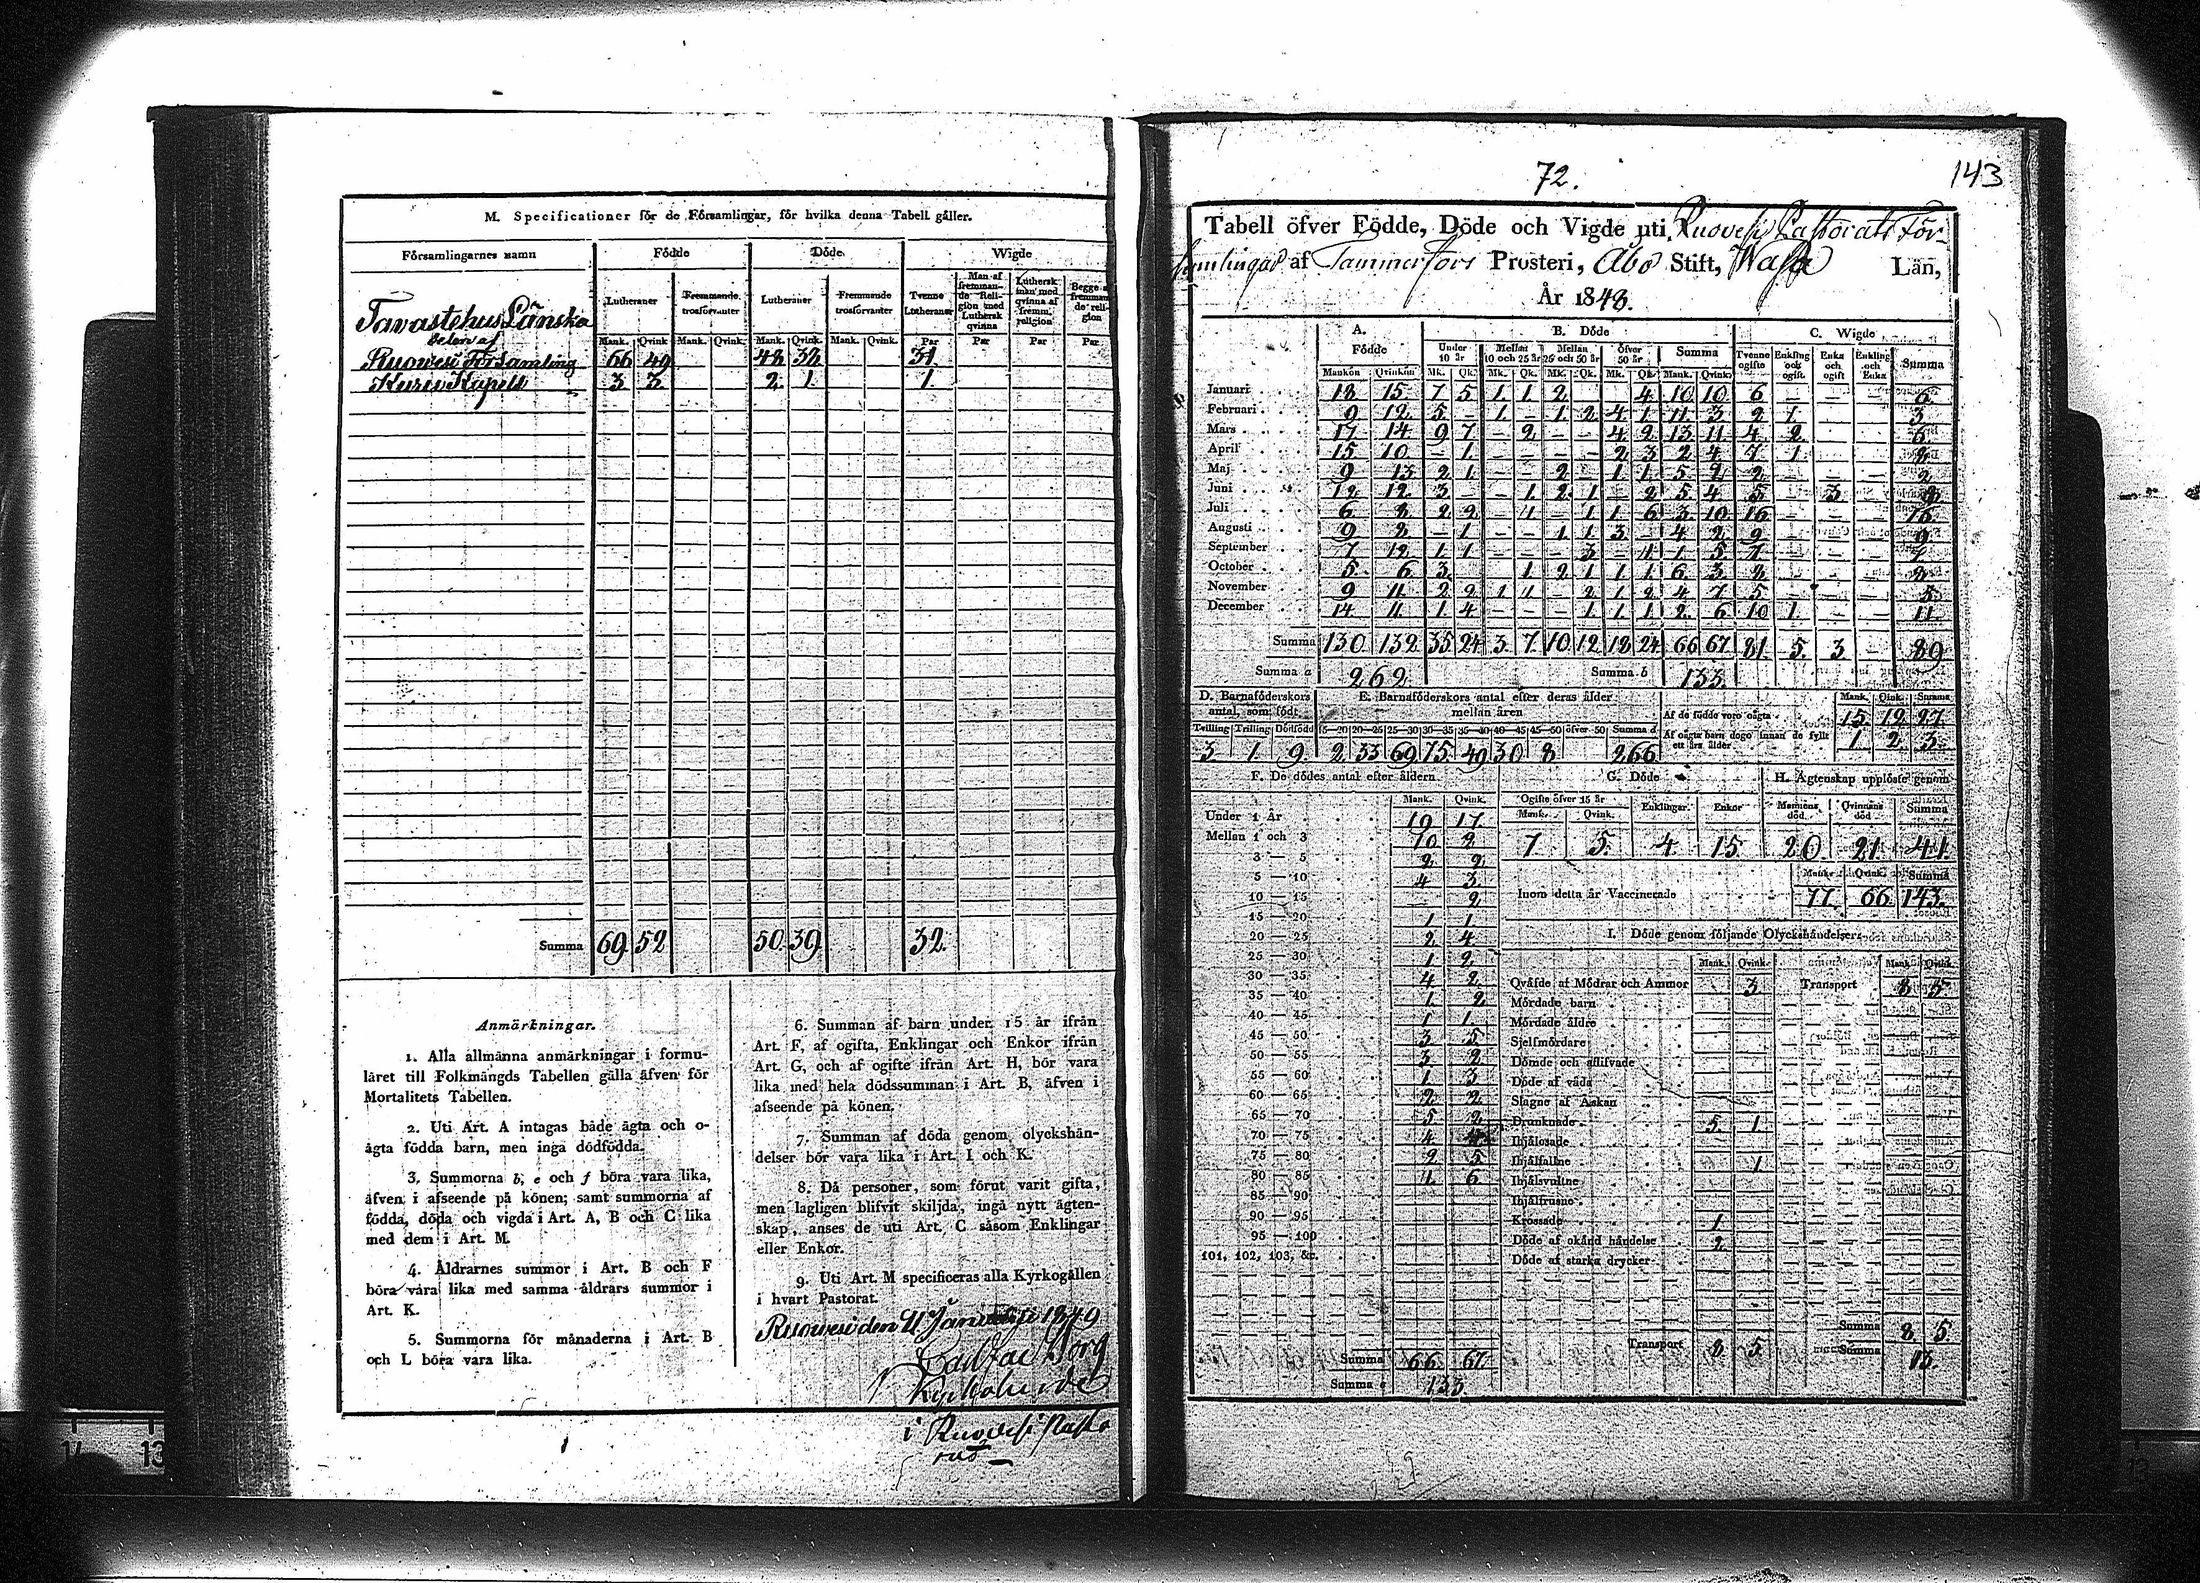 M. Specificationer för de Församlingar, för hvilka denna Tabell gäller.
Församlingarnes namn Födde Döde Wigde
Lutheraner Fremmande trosförvanter Lutheraner Fremmande trosförvanter Tvenne Lutheraner Man af fremmande Religion med Luthersk qvinna Luthersk man med qvinna af fremm. religion Begge af fremmande religion
Mank. Qvink. Mank. Qvink. Mank. Qvink. Mank. Qvink. Par Par Par Par
Tavastehus Länska
delen af
Ruowesi Församling 66 49 48 38 31
Kuru Kapell 3 3 2 1 1
Summa 69 52 50 39 32
Anmärkningar.
1. Alla allmänna anmärkningar i formu-
läret till Folkmängds Tabellen gälla äfven för
Mortalitets Tabellen.
2. Uti Art. A intagas både ägta och o-
ägta födda barn, men inga dödfödda.
3. Summorna b, e och f böra vara lika,
äfven i afseende på könen; samt summorna af
födda, döda och vigda i Art. A, B och C lika
med dem i Art. M.
4. Åldrarnes summor i Art. B och F
böra vara lika med samma åldrars summor i
Art. K.
5. Summorna för månaderna i Art. B
och L böra vara lika.
6. Summan af barn under 15 år ifrån
Art. F, af ogifta, Enklingar och Enkor ifrån
Art. G, och af ogifte ifrån Art. H, bör vara
lika med hela dödssumman i Art. B, äfven i
afseende på könen.
7. Summan af döda genom olyckshän-
delser bör vara lika i Art. I och K.
8. Då personer, som förut varit gifta,
men lagligen blifvit skiljda, ingå nytt ägten-
skap, anses de uti Art. C såsom Enklingar
eller Enkor.
9. Uti Art. M specificeras alla Kyrkogällen
i hvart Pastorat.
Ruowesi den 11 Januarii 1849
Borg
Kyrkoherde
i Ruovesi Pasto
rat
72. 143
Tabell öfver Födde, Döde och Vigde uti Ruovesi Pastorats För-
samlingar af Tammerfors Prosteri, Åbo Stift, Wasa Län,
År 1848.
A. Födde B. Döde C. Wigde
Under 10 år Mellan 10 och 25 år Mellan 25 och 50 år Öfver 50 år Summa Tvenne ogifte Enkling och ogift Enka och ogift Enkling och Enka Summa
Mankön Qvinkön Mk. Qk. Mk. Qk. Mk. Qk. Mk. Qk. Mank. Qvink.
Januari 18 15 7 5 1 1 2 4 10 10 6 — — — 6
Februari 9 12 5 — 1 — 1 2 4 1 11 3 2 1 — — 3
Mars 17 14 9 7 — 2 — — 4 2 13 11 4 2 — — 6
April 15 10 — 1 — — — — 2 3 2 4 7 1 — — 8
Maj 9 13 2 1 — — 2 — 1 1 5 2 2 — — — 2
Juni 12 12 3 — — 1 2 1 — 2 5 4 5 — 3 — 8
Juli 6 8 2 2 — 1 — 1 1 6 3 10 16 — — — 16
Augusti 9 8 — 1 — — 1 1 3 — 4 2 9 — — — 9
September 7 12 1 1 — — — 3 — 1 1 5 7 — — — 7
October 5 6 3 1 2 1 1 1 6 3 8 — — — 8
November 9 11 2 2 1 1 — 2 1 2 4 7 5 — — — 5
December 14 11 1 4 — — — 1 1 1 2 6 10 1 — — 11
Summa 130 132 35 24 3 7 10 12 18 24 66 67 81 5 3 — 89
Summa a 262 Summa b 133
D. Barnaföderskors antal, som födt E. Barnaföderskors antal efter deras ålder mellan åren
Mank. Qvink. Summa
Af de födde voro oägta 15 12 27
Af oägta barn dogo innan de fyllt ett års ålder 1 2 3
Tvilling Trilling Dödfödd 15—20 20—25 25—30 30—35 35—40 40—45 45—50 öfver 50 Summa d
3 1 9 2 33 69 75 49 30 8 266
F. De dödes antal efter åldern G. Döde H. Ägtenskap upplöste genom
Mank. Qvink. Ogifte öfver 15 år Enklingar Enkor Mannens död Qvinnans död Summa
Mank. Qvink.
7 5 4 15 20 21 41
Mank. Qvink. Summa
Inom detta år Vaccinerade 77 66 143
Under 1 År 19 17
Mellan 1 och 3 10 2
3 — 5 2 2
5 — 10 4 3
10 — 15 — 2
15 — 20 1 1
20 — 25 2 4
25 — 30 1 2
30 — 35 4 2
35 — 40 1 2
40 — 45 1 1
45 — 50 3 5
50 — 55 3 2
55 — 60 1 3
60 — 65 2 2
65 — 70 5 2
70 — 75 4
75 — 80 2 5
80 — 85 1 6
85 — 90
90 — 95
95 — 100
101, 102, 103, &c.
Summa 66 67
Summa e 133
I. Döde genom följande Olyckshändelser
Mank. Qvink. Mank. Qvink.
Qväfde af Mödrar och Ammor 3 Transport 8 5
Mördade barn
Mördade äldre
Sjelfmördare
Dömde och aflifvade
Döde af våda
Slagne af Åskan
Drunknade 5 1
Ihjälosade
Ihjälfallne 1
Ihjälsvultne
Ihjälfrusne
Krossade 1
Döde af okänd händelse 2
Döde af starka drycker
Transport 8 5
Summa 8 5
Summa 13